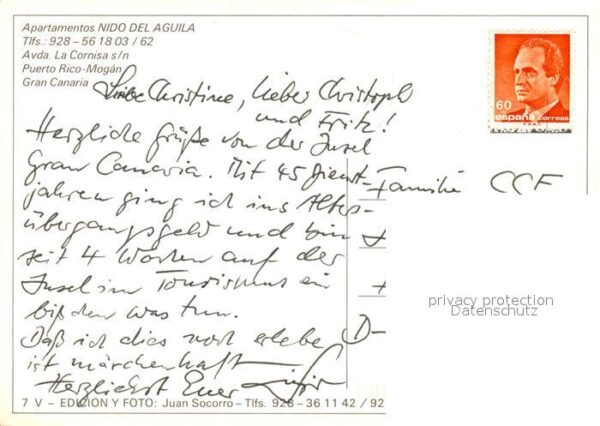 Apartamentos NIDO DEL AGUILA
Tlfs.: 928 - 56 18 03 / 62
Avda. La Cornisa s/n
Puerto Rico-Mogán
Gran Canaria
Liebe Christine, lieber Christoph
und Fritz!
Herzliche Grüße von der Insel
Gran Canaria. Mit 45 Dienst-
jahren ging ich ins Alters-
übergangsgeld und bin
seit 4 Wochen auf der
Insel im Tourismus ein
bißchen was tun.
Daß ich dies noch erlebe
ist märchenhaft
Herzlichst Euer
Familie CCF
D-
60
españa correos
privacy protection
Datenschutz
7 V - EDICION Y FOTO: Juan Socorro - Tlfs. 928 - 36 11 42 / 92